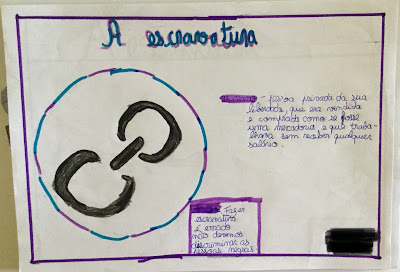 A escravatura
- pessoa privada da sua
liberdade, que era vendida
e comprada como se fosse
uma mercadoria e que traba-
lhava sem receber qualquer
salário.
Fazer
escravatura
é errado
não devemos
discriminar as
pessoas negras